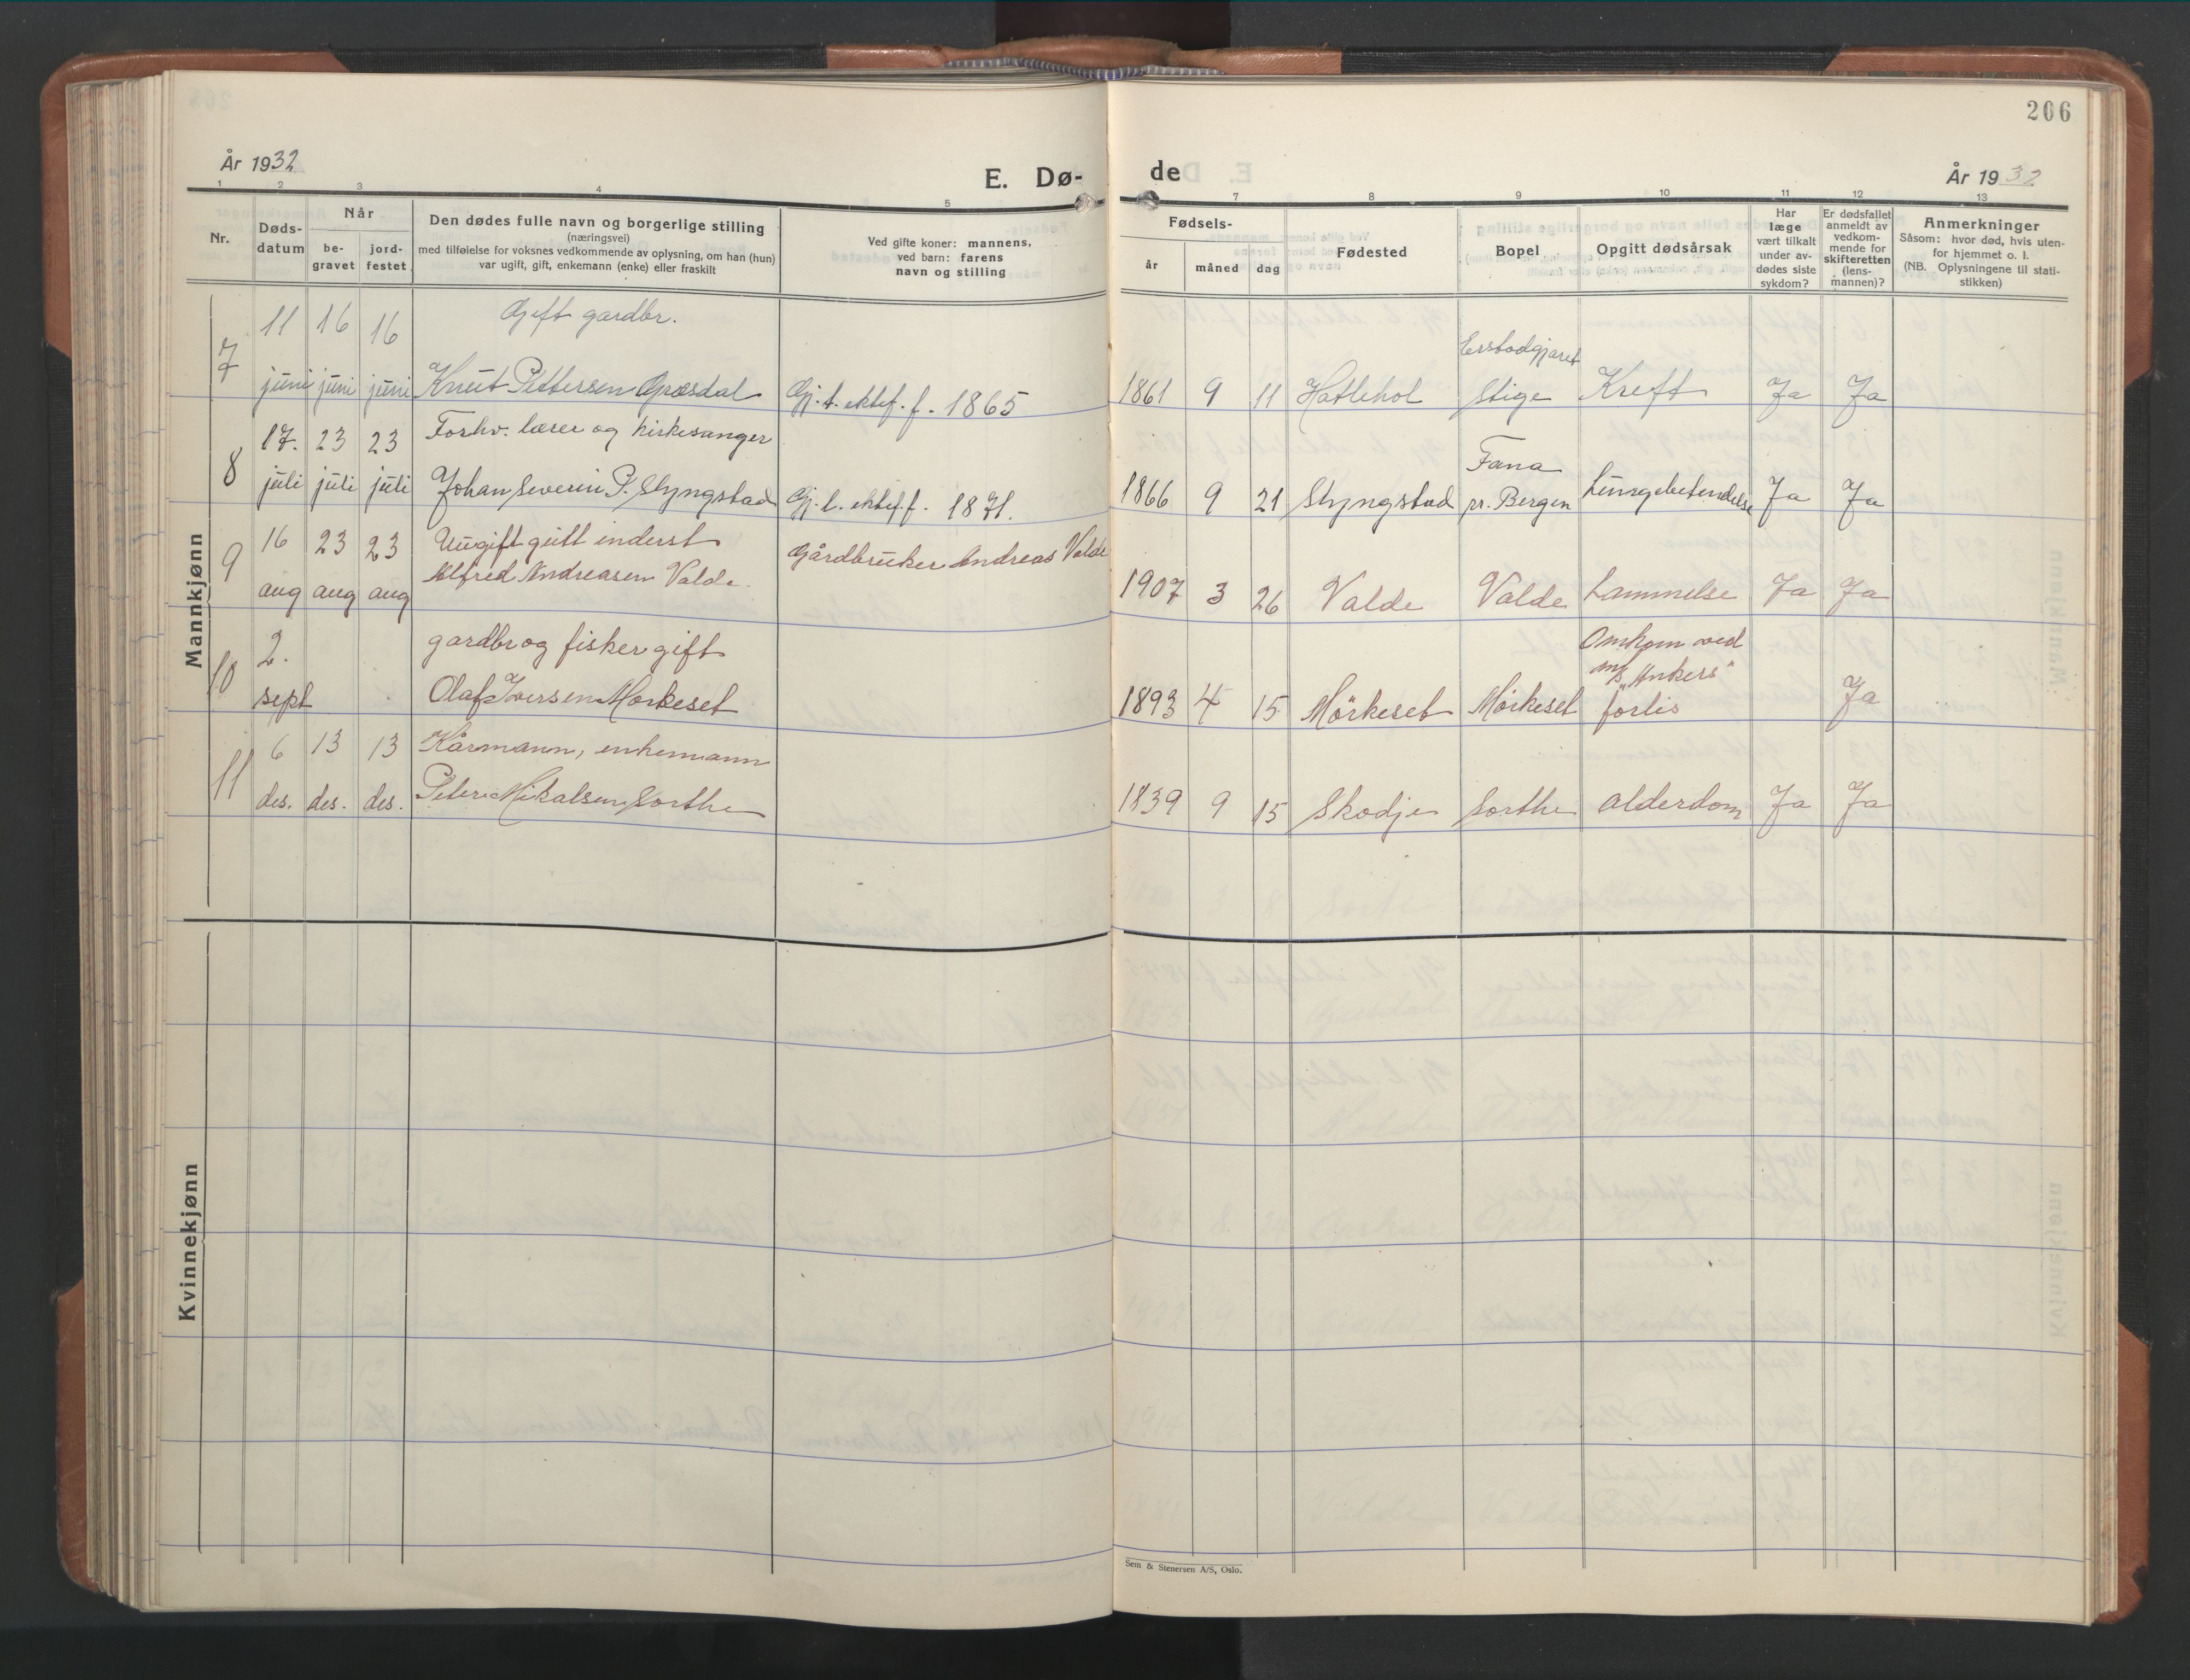 206
År 1932
E. Dø-
de
År 1932
1 2 3 4 5 7 8 9 10 11 12 13
Nr.
Døds-
datum
Når
be-
gravet
jord-
festet
Den dødes fulle navn og borgerlige stilling
(næringsvei)
med tilføielse for voksnes vedkommende av oplysning, om han (hun)
var ugift, gift, enkemann (enke) eller fraskilt
Ved gifte koner: mannens,
ved barn: farens
navn og stilling
Fødsels-
år måned dag
Fødested
Bopel
Opgitt dødsårsak
Har
læge
vært tilkalt
under av-
dødes siste
sykdom?
Er dødsfallet
anmeldt av
vedkom-
mende for
skifteretten
(lens-
mannen)?
Anmerkninger
Såsom: hvor død, hvis uten-
for hjemmet o. l.
(NB. Oplysningene til stati-
stikken)
Mannkjønn
7
11 16 16 Gift gardbr.
juni juni juni Knut Pettersen Græsdal Gj. t. ektef. f. 1865
Stige
1861 9 11 Hatlehol Kreft Ja Ja
8
17. 23 23 Forhv. lærer og kirkesanger
juli juli juli Johan Severin P. Slyngstad Gj. t. ektef. f. 1871.
Fana
1866 9 21 Slyngstad pr. Bergen Lungebetendelse Ja Ja
9
16 23 23 Ungift gutt inderst Gårdbruker Andreas Valde
aug aug aug Alfred Andreasen Valde
1907 3 26 Valde Valde Lammelse Ja Ja
10
2. gardbr og fisker gift
sept Olaf Iversen Mørkeset
Omkom ved
m/s „Ankers"
1893 4 15 Mörkeset Mörkeset forlis Ja
11
6 13 13 Kårmann, enkemann
des. des. des. Peter Mikalsen Sorthe
1839 9 15 Skodje Sorthe alderdom Ja Ja
Kvinnekjønn
Sem & Stenersen A/S, Oslo.